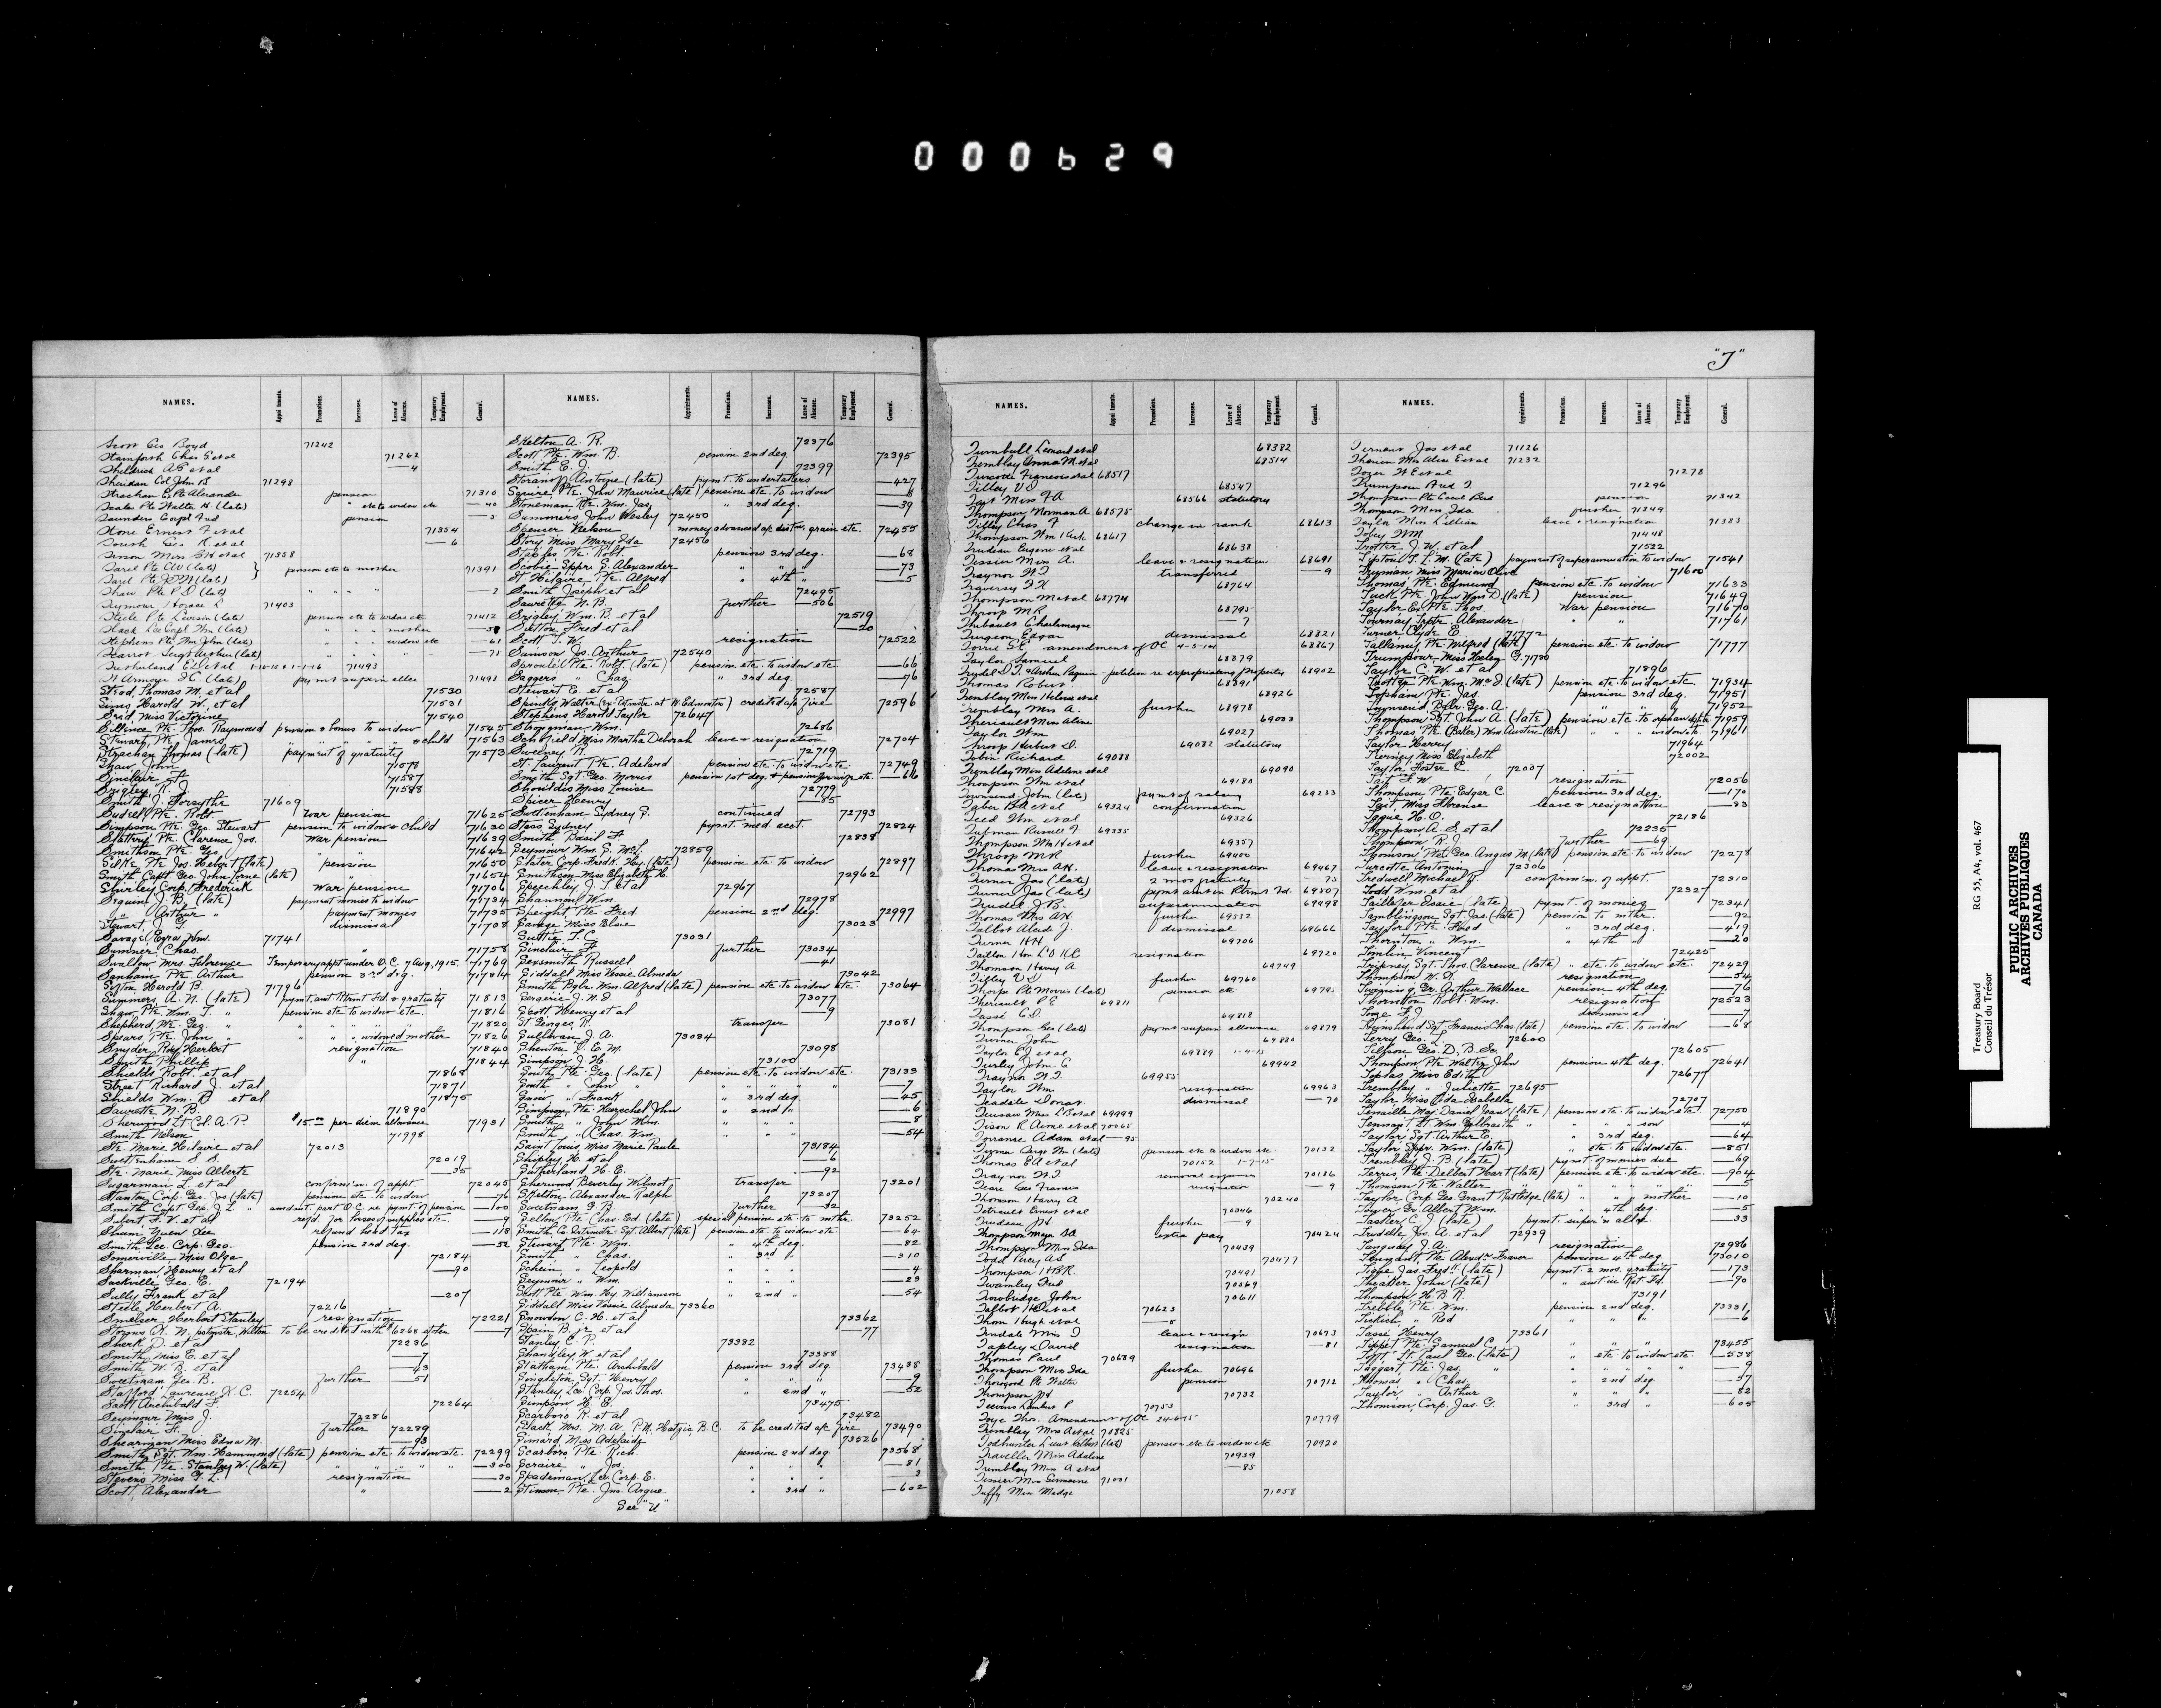 000629
"T"
NAMES. Appointments. Promotions. Increases. Leave of Absence. Temporary Employment. General.
Scott Geo Boyd 71242
Stamforth Chas E et al 71262
Sheldrick A E et al —4
Sheridan Col John B 71298
Strachan Pte Alexander pension 71310
Scales Pte Walter H. (late) " etc to widow etc —40
Saunders Corpl Fred pension —3
Stone Ernest F et al 71354
South Geo R et al —6
71358
pension etc to mother 71391
Shaw Pte P S (late) " " " " —2
Seymour Horace L 71403
Steele Pte (late) pension etc to widow etc 71412
Slack Lce Corpl Wm (late) " " " mother
Stephens Pte Wm John (late) " " " widow etc —61
Scarrot Sergt Arthur (late) " " " —75
Sutherland E L et al 1-10-15 & 1-1-16 71493
St Armour F C (late) paymt superan allce 71498
Stead, Thomas M. et al 71530
Sims Harold W. et al 71531
Said, Miss Victorine 71540
Sillence Pte. Thos. Raymond pension & bonus to widow 71545
Stewart, Pte. James " " " " & child 71563
Strachan Thomas (late) payment of gratuity 71573
Shaw John 71578
Sinclair F 71587
Srigley, R. J. 71588
Smith J. Forsythe 71609
Sudrel Pte. Robt. War pension 71625
Simpson Pte. Geo. Stewart pension to widow & child 71630
Slattery, Pte. Clarence Jos. War pension 71639
Smithson Pte. Geo. " " 71642
Silke Pte Jos. Hebert (late) pension 71650
Smith Capt. Geo. John Lorne (late) " 71654
Shirley Corp. Frederick War pension 71706
Seguin J. B. (late) payment monies to widow 71734
" Arthur " payment monies 71735
Stewart, G. T. dismissal 71738
Savage Ezra Wm. 71741
Sumner Chas. " 71758
Swallow Mrs. Florence Temporary appt under O.C. 7 Aug, 1915. 71769
Sanham Pte. Arthur pension 3rd deg. 71784
Sifton, Harold B. 71796
Summers A. N. (late) paymt. amt Retrmt Fd. & gratuity 71813
Shaw Pte. Wm. T. " pension etc to widow etc. 71816
Shepherd, Pte. Geo. " " " " " 71820
Spears Pte. John " " " " widowed mother 71826
Snyder Roy Herbert resignation 71840
Smith Phillip " 71844
Shields Robt. et al 71868
Street Richard J. et al 71871
Shields Wm. R. et al 71875
Saurette N. B. 71890
Sherwood Lt Col. A. P. $15.00 per diem allowance 71931
Smith Nelson 71998
Ste. Marie Hilaire et al 72013
Swettenham S. S. 72019
Ste. Marie Miss Alberte —35
Sugarman L. et al confirm'n. of appt. 72045
Stanton Corp. Geo. Jos (late) pension etc. to widow —76
Smith Capt. Geo. J. L. " amdmt. part O.C. re pymt. of pension —100
Sibert, F. V. et al ref'd. for losses of supplies etc. —9
Shum Yuen Lee refund head tax —118
Smith Lce. Corp. Geo. pension 3rd deg. —52
Somerville Miss Olga 72184
Sharman Henry et al —90
Sackville, Geo. E. 72194
Sully Frank et al —207
Steele Herbert A. 72216
Smelser Herbert Stanley resignation 72221
Storms R. N. postmstr. Wilton to be credited with $6268 stolen —7
Sherk D. et al 72236
Smith Miss E. et al —7
Smith W. B. et al —43
Sweetnam Geo. B. Further —51
Stafford Lawrence X. C. 72254
Scott Archibald F. 72264
Seymour Miss J. 72286
Sinclair F. Further 72289
Shearman Miss Edna M. —93
Smith Sgt. Wm. Hammond (late) pension etc. to widow etc. 72299
Smith Pte. Stanley W. (late) " " " " —300
Stevens Miss G. L. resignation —30
Scott, Alexander " —2
NAMES. Appointments. Promotions. Increases. Leave of Absence. Temporary Employment. General.
Skelton A. R. 72376
Scott Pte. Wm. B. pension 2nd deg. 72395
Smith E. J. 72399
Storanof Antoine (late) paymt. to undertakers —427
Squire Pte. John Maurice (late) pension etc. to widow —8
Stoneman, Pte. Wm. Jas. " 3rd deg. —39
Summers John Wesley 72450
Spencer Nelson money advanced a/c distn. grain etc. 72455
Story Miss Mary Ida 72456
Stacpo Pte. Robt. pension 3rd deg. —68
Scobie Sppr. G. Alexander " " " —73
St Hilaire, Pte. Alfred " 4th " —5
Smith Joseph et al 72495
Saurette N. B. Further —506
Srigley Wm. B. et al 72519
Sutton Fred et al —20
Scott T. W. resignation 72522
Samson Jos. Arthur 72540
Sproule Pte. Robt. (late) pension etc. to widow etc —66
Saggers " Chas. " 3rd deg. —76
Stewart E. et al 72587
Spinks Walter (ex-Postmstr. at W. Edmonton) credited a/c fire 72596
Stephens Harold Taylor 72647
Stageman Wm. 72656
Schofield Miss Martha Deborah leave & resignation 72704
Sweeney R. 72719
St. Laurent Pte. Adelard pension etc. to widow etc. 72749
Smith Sgt Geo. Morris pension 1st deg. & pension for wife etc. —66
Shouldis Miss Louise 72779
Spicer Henry —85
Swettenham Sydney G. continued 72793
Stass Sydney pymt. med. acct 72824
Smith Basil F. 72838
Seymour Wm. G. McL. 72859
Slater Corp. Fredk. Hy. (late) pension etc. to widow 72897
Smithson Miss Elizabeth H. 72962
Speechley J. T. et al 72967
Shannon Wm. 72978
Speight Pte Fred. pension 2nd deg. 72997
Savage Miss Elsie 73023
Sutter T. C. 73031
Sinclair F. Further 73034
Sexsmith Russell —41
Siddall Miss Vessie Almeda 73042
Smith Bglr. Wm. Alfred (late) pension etc. to widow etc. 73064
Sergerie J. N. E 73077
Scott Henry et al —9
St Georges R. transfer 73081
Sullivan J. A. 73084
Shenton V. E. M. 73098
Simpson J. H. 73100
South Pte. Geo. (late) pension etc. to widow etc. 73133
South " John " " " " " " —7
Snow " Frank " 3rd deg. —45
Simpson Pte. Herschel John " 2nd " —6
Smith " John Wm. " " " —8
Smith " Chas. Wm. " " " —54
Saint Louis, Miss Marie Paule 73184
Shipley H. et al —6
Sutherland H. E. —92
Sherwood Beverley Wilmot transfer 73201
Skelton Alexander Ralph 73207
Sweetnam G. B. Further —32
Selling Pte Chas. Ed. (late) special pension etc. to mthr. 73252
Smith, Co. Qrtrmstr. Sgt. Albert (late) pension etc. to widow etc —64
Stewart Pte. Wm. " 4th deg. —82
Smith " Chas. " 3rd " —310
Schein " Leopold " " " —4
Seymour " Wm. " " " —23
Scott Pte. Wm. Hy. Williamson " 2nd " —54
Siddall Miss Vessie Almeda 73360
Snowdon C. H. et al 73362
Spain B. jr. et al —77
Stanley C. P. 73382
Shandley W. et al 73388
Statham, Pte. Archibald pension 3rd deg. 73438
Singleton, Sgt. Henry " " " —9
Stanley, Lce. Corp. Jos. Thos. " 2nd " —52
Simpson H. E. 73475
Scarboro R. et al 73482
Slack, Mrs. M. A. P.M. Hatzic B.C. to be credited a/c fire 73490
Simard Miss Adelaide 73526
Scarboro Pte Rich. pension 2nd deg 73568
Scraire " Jos. " " " —81
Spademan, Lce Corp. E. " " " —3
Stimson Pte. Jno. Argue " 3rd " —602
See "U"
NAMES. Appointments. Promotions. Increases. Leave of Absence. Temporary Employment. General.
Turnbull Leonard et al 68382
Tremblay Anna M et al 68514
Turcotte Francois et al 68517
Tilley V S 68547
Tait Miss F A 68566 statutory
Thompson Norman A 68575
Tilley Chas F change in rank 68613
Thompson Wm Kirk 68617
Trudeau Eugene et al 68638
Tessier Miss A. leave & resignation 68691
Traynor W T transferred —9
Traversy F X 68764
Thompson M et al 68774
Throop M R 68795
Thibault Charlemagne —7
Turgeon Edgar dismissal 68821
Torrie St C. amendment of OC 4-5-14 68867
Taylor Samuel 68879
petition re expropriating property 68902
Thomas Robert 68891
Tremblay Miss Helene et al 68926
Tremblay Miss A. further 68978
Theriault Miss Aline 69003
Taylor Wm 69027
Throop Herbert D. 69082 statutory
Tobin Richard 69088
Tremblay Miss Adeline et al 69090
Thompson Wm et al 69180
Townsend John (late) paymt of salary 69233
Taber B A et al 69324 confirmation
Teed Wm et al 69326
Tufman Russell F. 69335
Thompson Wm H et al 69357
Throop M R further 69400
Thomas Mrs A H. leave & resignation 69467
Turner Jas (late) 2 mos gratuity —75
Turner Jas (late) paymt amt in Retrmt Fd. 69507
Trudel J B. superannuation 69498
Thomas Mrs A H further 69532
Talbot Alard J. dismissal 69666
Turner H H. 69706
Taillon Hon L O KC resignation 69720
Thomson Harry A 69749
Tilley V S further 69760
Thorpe Pte Morris (late) pension etc 69795
Theriault P E 69811
Tassé E D. 69818
Thompson Geo (late) paymt superan allowance 69879
Turner John 69880
Taylor E J et al 69889 1-4-15
Turley John C 69942
Traynor W T. 69955
Taylor Wm resignation 69963
Teadale Donat dismissal —70
Miss L B et al 69999
Tison R Aime et al 70065
Torrance Adam et al —95
pension etc to widow etc 70132
Thomas Ed et al 70152 1-7-15
Traynor W T. removal expenses 70186
Francis resignation —9
Thomson Harry A 70240
Tetrault Ernest et al 70346
Trudeau J H further —9
Thompson extra pay 70424
Thompson Miss Ida 70439
Todd Percy A S 70477
Thompson H B R. 70491
Twamley Fred 70569
Trowbridge John 70611
Talbot H D et al 70623
Thom Hugh et al —5
Tindale Miss I leave & resig'n 70673
Tapley David resignation —81
Thomas Paul 70689
Thompson Miss Ida further 70696
Thorogood Pte Walter pension 70712
Thompson J H 70732
Teevens Lambert P 70753
Tope Thos. Amendment of OC 24-6-15 70779
Tremblay Miss A et al 70825
Todhunter Lieut Gilbert (late) pension etc to widow etc. 70920
Traveller Miss Adaline 70939
Tremblay Miss A et al —85
Tessier Miss Germaine 71001
Tuffy Miss Madge 71058
NAMES. Appointments. Promotions. Increases. Leave of Absence. Temporary Employment. General.
Jas et al 71126
Therien Miss Alice E et al 71232
Tozer W E et al 71278
Thompson Fred T 71296
Thompson Pte Cecil Bird pension 71342
Thompson Miss Ida further 71349
Taylor Miss Lillian leave & resignation 71383
Tobey W M 71448
Trotter J. W. et al 71522
Tipton T. L. M. (late) payment of superannuation to widow 71541
Truman Miss Marion Olive 71600
Thomas, Pte. Edmund pension etc. to widow 71633
Tuck, Pte. John Wm D. (late) pension 71649
Taylor Ex-Pte. Thos. War pension 71670
Tournay Trptr. Alexander " " 71761
Turner Clyde E. 71772
Talkamy, Pte. Wilfred (late) pension etc. to widow 71777
Trumpour Miss Helen G. 71780
Taylor C. W. et al 71896
Trotter Pte. Wm. McI. (late) pension etc. to widow etc. 71934
Topham Pte. Jas. pension 3rd deg. 71951
Townsend Bglr. Geo. A. " " " 71952
Thompson Sgt. John A. (late) pension etc. to orphan dghtr. 71959
Thomas Pte. (Baker) Wm Austin (late) " " " widow etc. 71961
Taylor Harry 71964
Tierney Miss Elizabeth 72002
Taylor Foster C. 72007
Tait F. W. resignation 72056
Thompson, Pte. Edgar C. pension 3rd deg. —170
Tait, Miss Florence leave & resignation —83
Togue H. O. 72186
Thompson A. S. et al 72235
Thompson R. J. Further —69
Thomson Pte. Geo. Angus M. (late) pension etc. to widow 72278
Turcotte Antonin 72306
Tredwell Michael J. confirm'n. of appt. 72310
Todd Wm. et al 72327
Taillefer Essie (late) pymt. of monies 72341
Tamblingson Sgt. Jas. (late) pension to mthr. —92
Taylor Pte. Fred " 3rd deg. —419
Thornton " Wm. " 4th " —20
Tomlin Vincent 72425
Tripney, Sgt. Thos. Clarence (late) " etc. to widow etc. 72429
Thompson W. D. resignation —54
Twining, Dr. Arthur Wallace pension 4th deg. —76
Thornton Robt. Wm. resignation 72523
Tome F. J. dismissal —7
Sgt. Francis Chas (late) pension etc. to widow —68
Terry Geo. L. 72600
Tillson Geo. D., B. Sc. 72605
Thompson, Pte. Walter John pension 4th deg. 72641
Topias, Miss Edith 72677
Tremblay " Juliette 72695
Taylor Miss Ida Isabella 72707
Tenaille Maj. Daniel Jean (late) pension etc. to widow etc. 72750
Tennant, Lt. Wm. Galbraith " " " " son —4
Taylor, Sgt Arthur E. " 3rd deg. —64
Taylor Sppr. Wm. (late) " etc to widow etc. —851
Tremblay J. B. (late) pymt of monies due —69
Ferris, Pte Delbert Hart (late) pension etc. to widow etc. —904
Thomson Pte. Walter " " " " " —5
Taylor Corp. Geo. Grant Rutledge (late) " " " mother —10
Tower Dr. Albert Wm. " 4th deg. —5
Tassler C. J. (late) pymt. super'n allce. —33
Trudelle Jos. A. et al 72939
Tanguay J. A. resignation 72986
Tennant, Pte. Alexdr. Fraser pension 4th deg. 73010
Tighe Jas. Fred'k (late) pymt 2 mos. gratuity —173
Theaker John (late) " amt in Ret. Fd. —90
Thompson H. B. R. 73191
Trebble Pte. Wm. pension 2nd deg. 73331
" Rod " " " —6
Tassé Henry 73361
Tippet Pte. Samuel C. " " " 73455
Toft Lt. Paul Geo. (late) " etc to widow etc. —538
Taggart Pte. Jas. " " " " " " 9
Thomas " Chas. " 2nd deg. —37
Taylor " Arthur " " " —82
Thomson Corp. Jas. G. " 3rd " —605
Treasury Board
Conseil du Trésor
RG 55, A4, vol. 467
PUBLIC ARCHIVES
ARCHIVES PUBLIQUES
CANADA